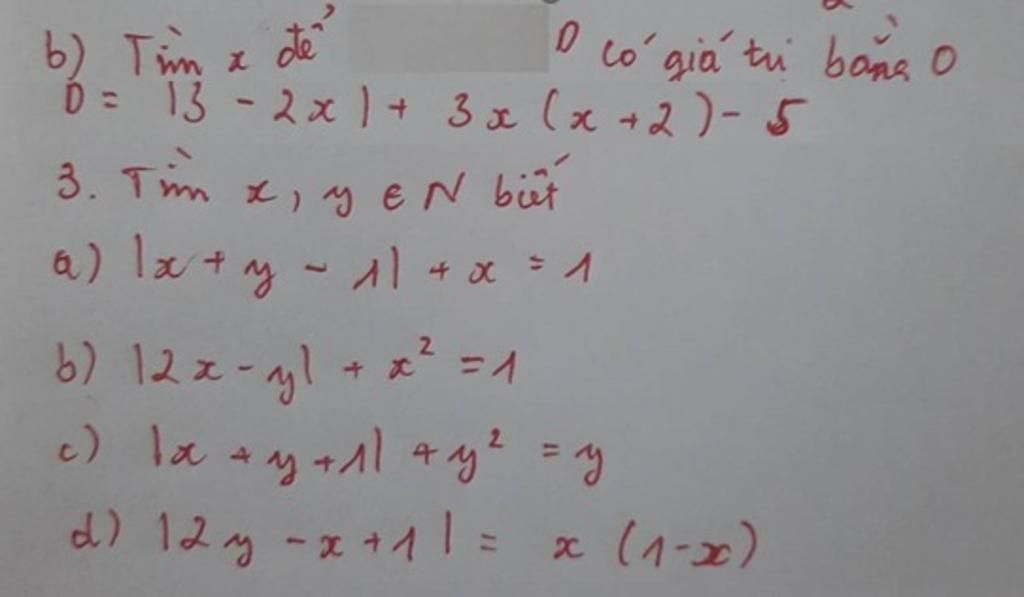 b) Tìm x để D có giá trị bằng 0
D = |3 - 2x| + 3x(x + 2) - 5
3. Tìm x, y ∈ N biết
a) |x + y - 1| + x = 1
b) |2x - y| + x² = 1
c) |x + y + 1| + y² = y
d) |2y - x + 1| = x (1 - x)